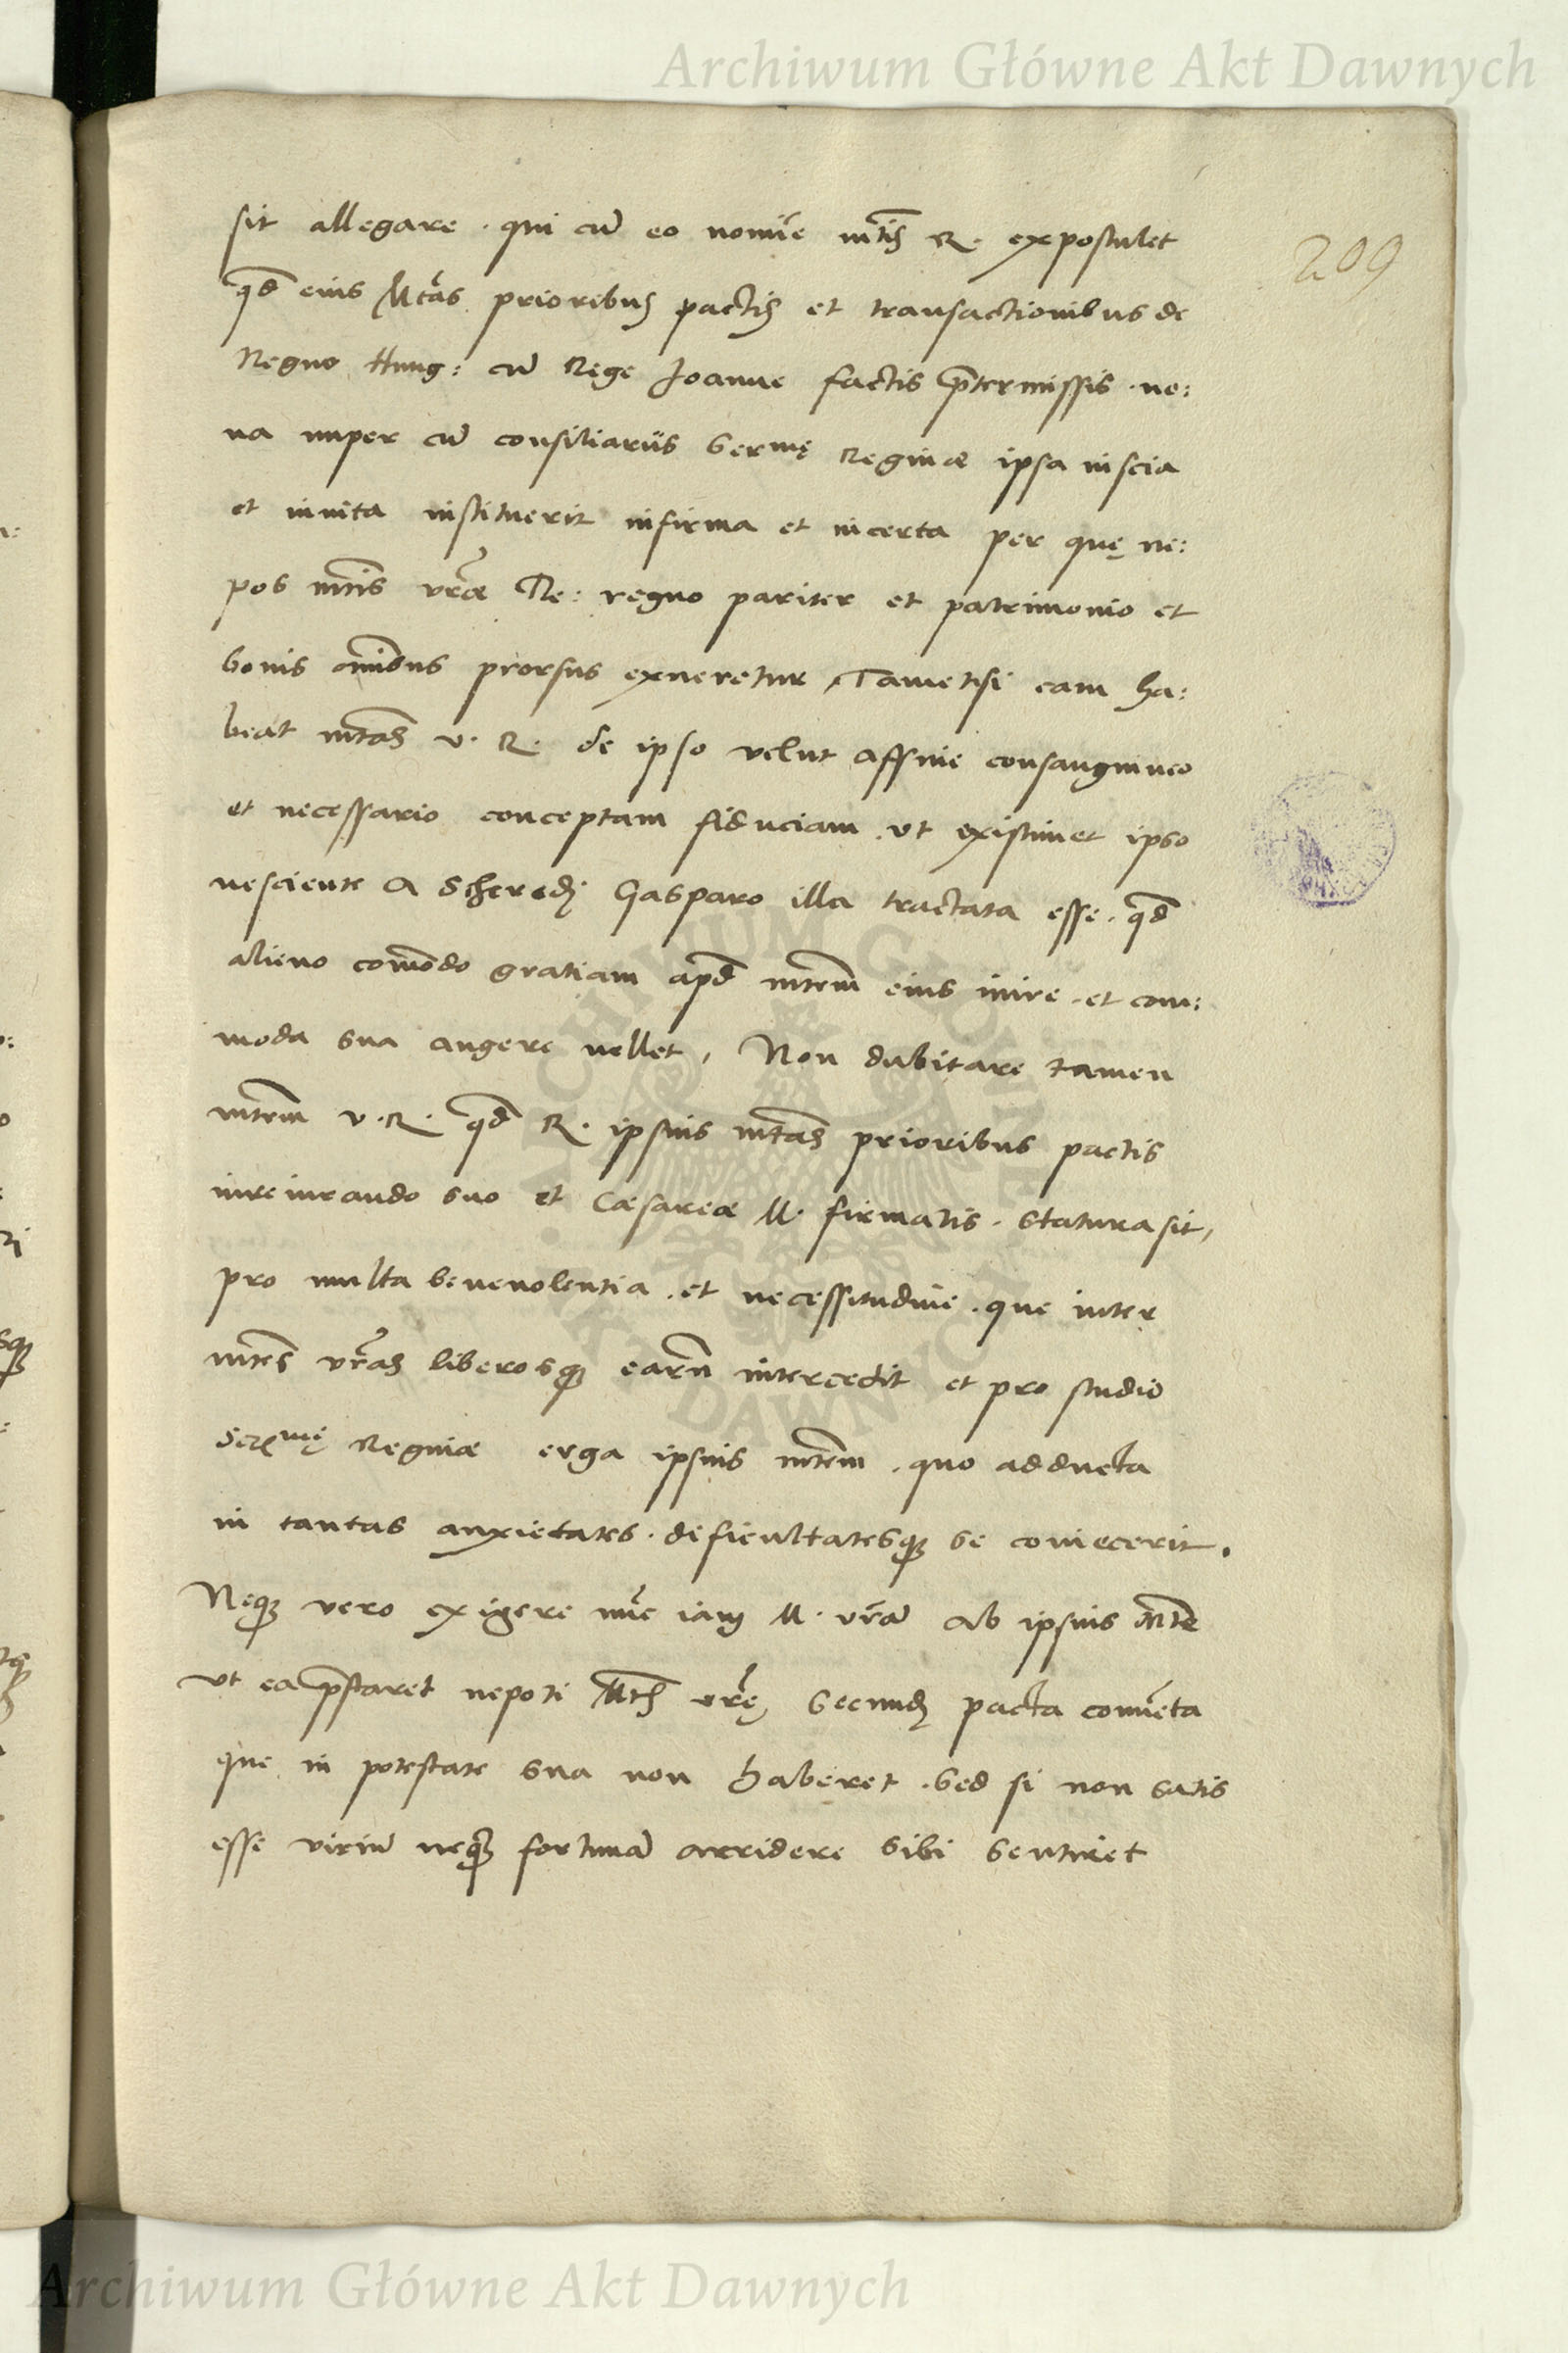 Archiwum Główne Akt Dawnych
209
sit allegare. qui cũ eo nomĩe mtis R. expostulet
qd eius Mtas prioribus pactis et transactionibus de
Regno Hung: cũ Rege Joanne factis ptermissis. no:
va nuper cũ consiliariis Sermę Reginæ ipsa inscia
et invita instituerit infirma et incerta per quę ne:
pos mtis vræ Re: regno pariter et patrimonio et
bonis omibus prorsus exueretur, Tametsi eam ha:
beat mtas v. R. de ipso velut affine consanguineo
et necessario conceptam fiduciam. ut existimet ipso
nesciente a Scheredj Gasparo illa tractata esse. qd
alieno comodo gratiam apd mtem eius inire. et com:
moda sua augere vellet, Non dubitare tamen
mtem v. R. qd R. ipsius mtas prioribus pactis
iureiurando suo et Cæsareæ M. firmatis. statura sit,
pro multa benevolentia. et necessitudine. que inter
mtes vras liberosq earũ intercedit et pro studio
Sermę Reginæ erga ipsius mtem. quo adducta
in tantas anxietates. deficultatesq se coniecerit.
Neq vero exigere nũc iam M. vrã ab ipsius Mte
ut ea pstaret nepoti Mtis vrę secundũ pacta convẽta
que in potestate sua non haberet. sed si non satis
esse viriũ neq fortunã arridere sibi sentiret
ARCHIWUM GŁÓWNE AKT DAWNYCH
Archiwum Główne Akt Dawnych